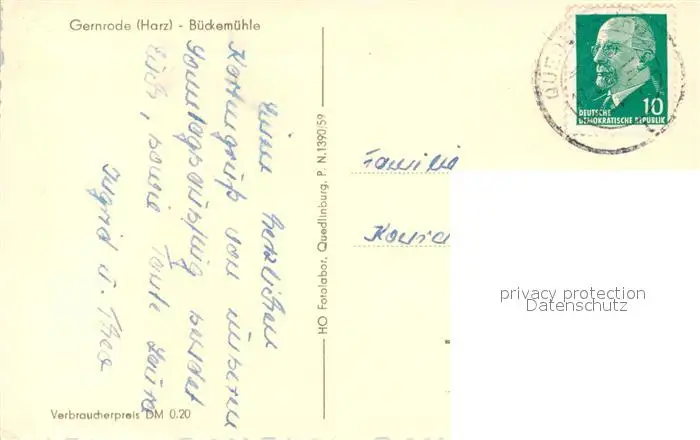 Gernrode (Harz) - Bückemühle
Einen herzlichen
Kartengruß von unserem
Sonntagsausflug sendet
Euch, sowie Tante
Ingrid u. Theo
Verbraucherpreis DM 0.20
HO Fotolabor, Quedlinburg, P. N.1390/59
QUED
10
DEUTSCHE
DEMOKRATISCHE REPUBLIK
Familie
Konra
privacy protection
Datenschutz